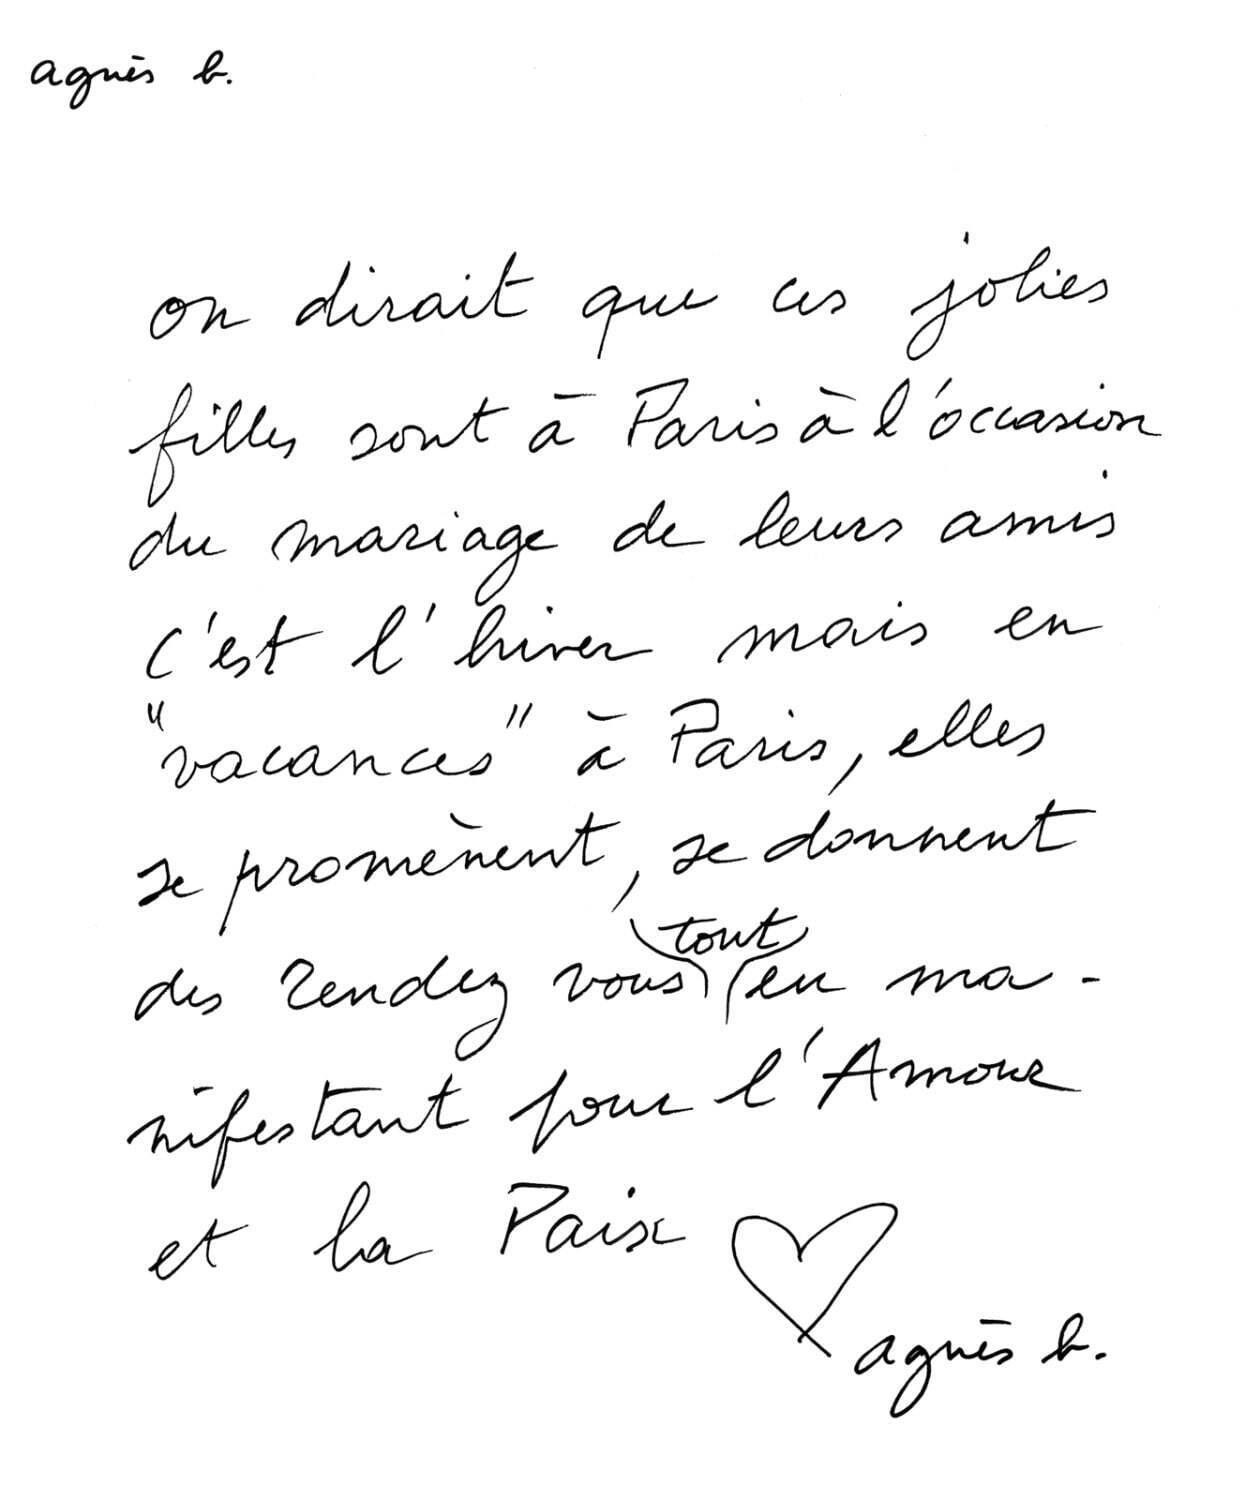 agnès b.
on dirait que ces jolies
filles sont à Paris à l'occasion
du mariage de leurs amis
c'est l'hiver mais en
"vacances" à Paris, elles
se promènent, se donnent
tout
des rendez vous en ma-
nifestant pour l'Amour
et la Paix
agnès b.